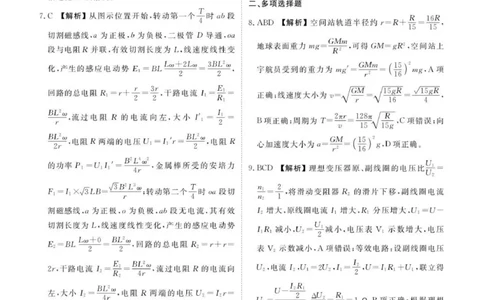 7.C 【解析】从图示位置开始,转动第一个 T/4 时 ab 段
切割磁感线,a 为正极,b 为负极,二极管 D 导通,oa
段与电阻 R 并联,有效切割长度为 L,线速度线性变
化,产生的感应电动势 E₁=BL (Lω+2Lω)/2 = 3BL²ω/2,
回路的总电阻 R₁=r+ r/2 = 3r/2,干路电流 I₁= E₁/R₁ =
BL²ω/r,流过电阻 R 的电流向左,大小 I₁′= I₁/2 =
BL²ω/2r,电阻 R 两端的电压 U₁=I₁′r= BL²ω/2,电阻 R
的功率 P₁=U₁I₁′= B²L⁴ω²/4r,金属棒所受的安培力
F₁=I₁×√3LB= √3B²L³ω/r;转动第二个 T/4 时 oa 段切
割磁感线,a 为正极,o 为负极,ab 段无电流,其有效
切割长度为 L,线速度线性变化,产生的感应电动势
E₂=BL (Lω+0)/2 = BL²ω/2,回路的总电阻 R₂=r+r=
2r,干路电流 I₂= E₂/R₂ = BL²ω/4r,流过电阻 R 的电流向
左,大小 I₂= BL²ω/4r,电阻 R 两端的电压 U₂=I₂r=
二、多项选择题
8.ABD 【解析】空间站轨道半径约 r=R+ R/15 = 16R/15,
地球表面重力 mg= GMm/R²,可得 GM=gR²,空间站上
宇航员受到的重力为 mg′= GMm/r² =(15/16)²mg,A项
正确;线速度大小为 v=√(GM/r) =√(15gR/16) = √(15gR)/4,
B项正确;周期为 T= 2πr/v = 128π/15 √(R/15g),C项错误;向
心加速度大小为 a= GM/r² =(15/16)²g,D项正确。
9.BCD 【解析】理想变压器原、副线圈的电压比 U₁/U₂ =
n₁/n₂ = 2/1,将滑动变阻器 R₂ 的滑片下移,副线圈电流
I₂ 增大,原线圈电流 I₁ 增大,R₁ 分压增大,U₁=U−
I₁R₁ 减小,U₂= U₁/2 减小,电压表 V₁ 示数增大,电压
表 V₂ 示数减小,A项错误;等效电路:设副线圈电压
U₂,电流 I₂,U₁=2U₂,I₁= I₂/2,U=I₁R₁+U₁,联立得